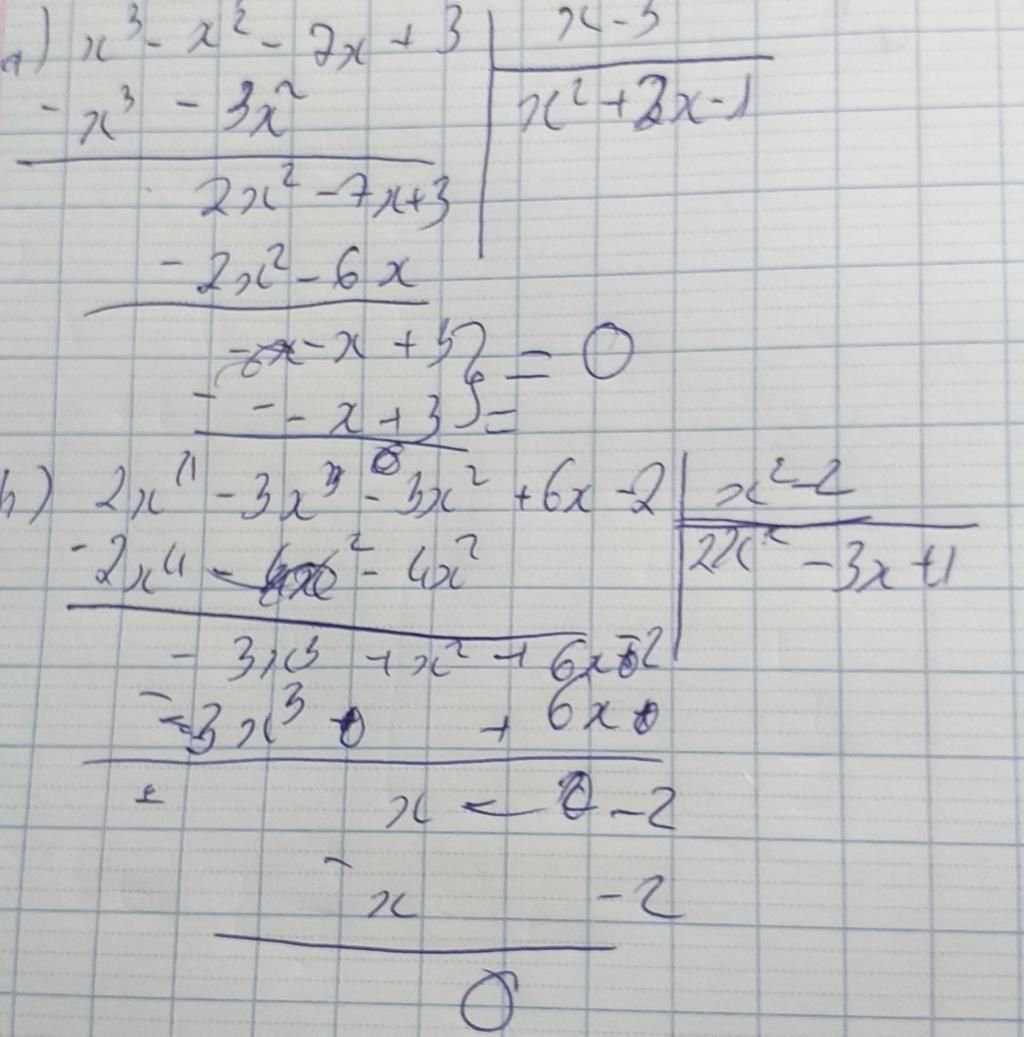 a) x³ - x² - 7x + 3 | x - 3
- x³ - 3x² | x² + 2x - 1
2x² - 7x + 3
- 2x² - 6x
- x + 3 } = 0
- - x + 3 } =
0
b) 2x⁴ - 3x³ - 3x² + 6x - 2 | x² - 2
- 2x⁴ - 4x² | 2x² - 3x + 1
- 3x³ + x² + 6x - 2
- - 3x³ + 6x
x - 2
- x - 2
0